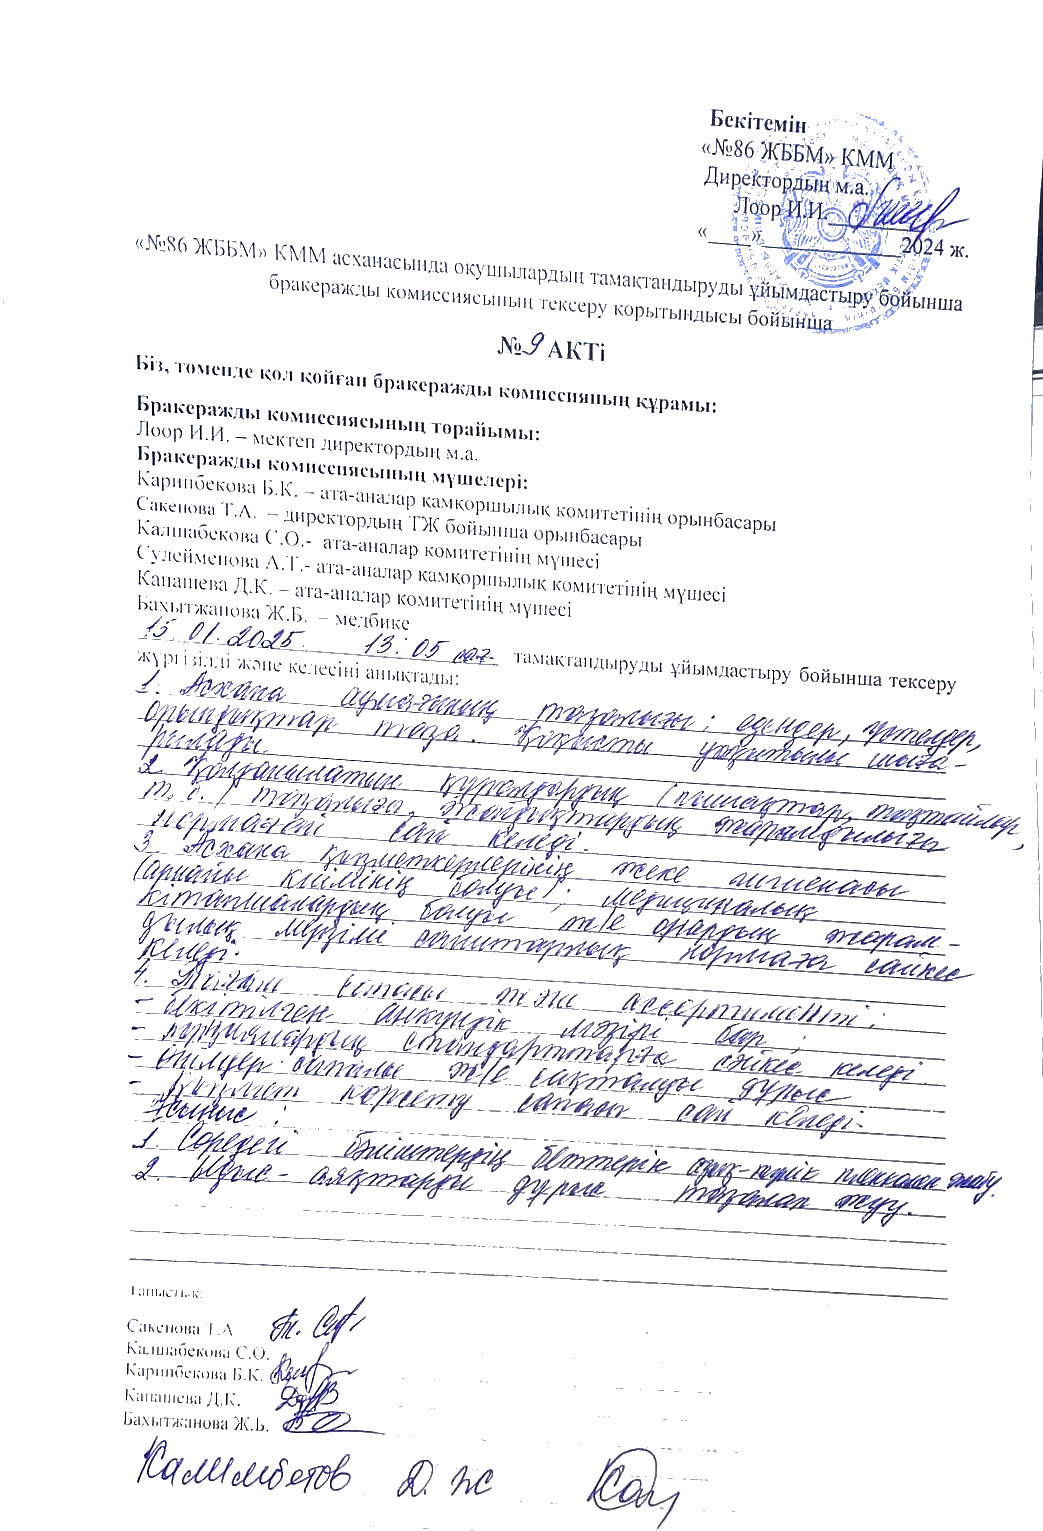 Бекітемін
«№86 ЖББМ» КММ
Директордың м.а.
Лоор И.И.
«____»____________2024 ж.
«№86 ЖББМ» КММ асханасында оқушылардың тамақтандыруды ұйымдастыру бойынша
бракеражды комиссиясының тексеру қорытындысы бойынша
№9 АКТі
Біз, төменде қол қойған бракеражды комиссияның құрамы:
Бракеражды комиссиясының төрайымы:
Лоор И.И. – мектеп директордың м.а.
Бракеражды комиссиясының мүшелері:
Карипбекова Б.К. – ата-аналар қамқоршылық комитетінің орынбасары
Сакенова Т.А. – директордың ТЖ бойынша орынбасары
Калшабекова С.О.- ата-аналар комитетінің мүшесі
Сулейменова А.Т.- ата-аналар қамқоршылық комитетінің мүшесі
Капашева Д.К. – ата-аналар комитетінің мүшесі
Бахытжанова Ж.Б. – медбике
15 01.2025. 13:05 сағ. тамақтандыруды ұйымдастыру бойынша тексеру
жүргізілді және келесіні анықтады:
1. Асхана аумағының тазалығы: едендер, үстелдер,
орындықтар таза. Қоқысты уақытылы шыға-
рылады.
2. Қолданылатын құралдардың (пышақтар, тақтайлар,
т.с.) тазалыға, жабдықтардың жарамдылыға
нормағай сай келеді.
3. Асхана қызметкерлерінің жеке гигиенасы
(арнайы киімінің болуы); медициналық
кітапшалардың болуы ж/е олардың жарам-
дылық мерзімі санитарлық нормаға сәйкес
келеді.
4. Тағам сапасы және ассортименті;
- бекітілген апкүндік мәзірі бар;
- порциялардың стандарттарға сәйкес келеді
- өнімдер сапалы ж/е сақталуы дұрыс
- Қызмет көрсету сапасы сай келеді.
Ұсыныс:
1. Сөредегі бәліштердің беттерін пленкамен жабу.
2. Ыдыс-аяқтарды дұрыс тазалап жуу.
Таныстық:
Сакенова Т.А
Калшабекова С.О.
Карипбекова Б.К.
Капашева Д.К.
Бахытжанова Ж.Б.
Калимбетов Д. Ж